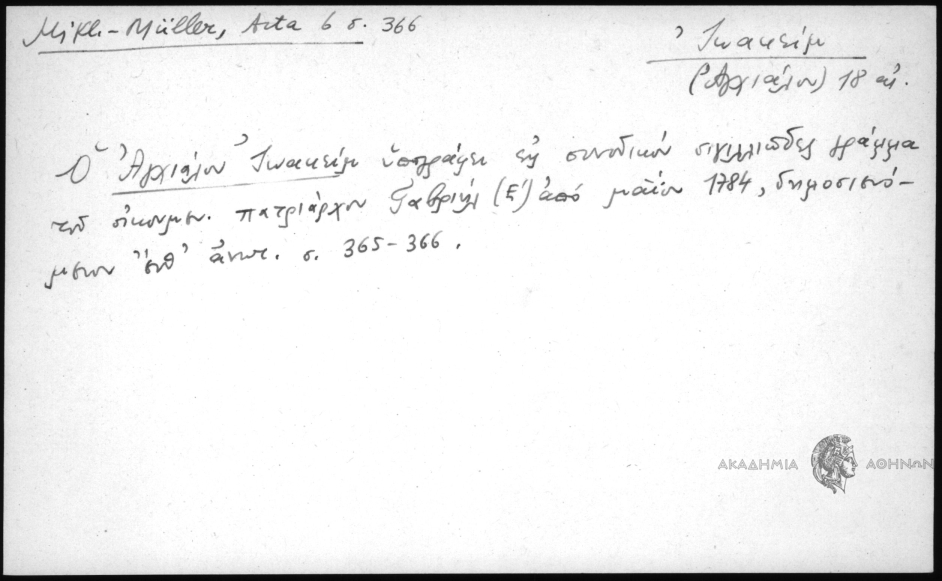 Mikl-Müller, Acta 6 σ. 366
Ἰωακείμ
(Ἀγχιάλου) 18 αἰ.
Ὁ Ἀγχιάλου Ἰωακείμ ὑπογράφει εἰς συνοδικόν σιγιλλιῶδες γράμμα
τοῦ οἰκουμεν. πατριάρχου Γαβριήλ ἀπό μαΐου 1784, δημοσιευό-
μενον ἐνθ' ἀνωτ. σ. 365-366.
ΑΚΑΔΗΜΙΑ ΑΘΗΝΩΝ